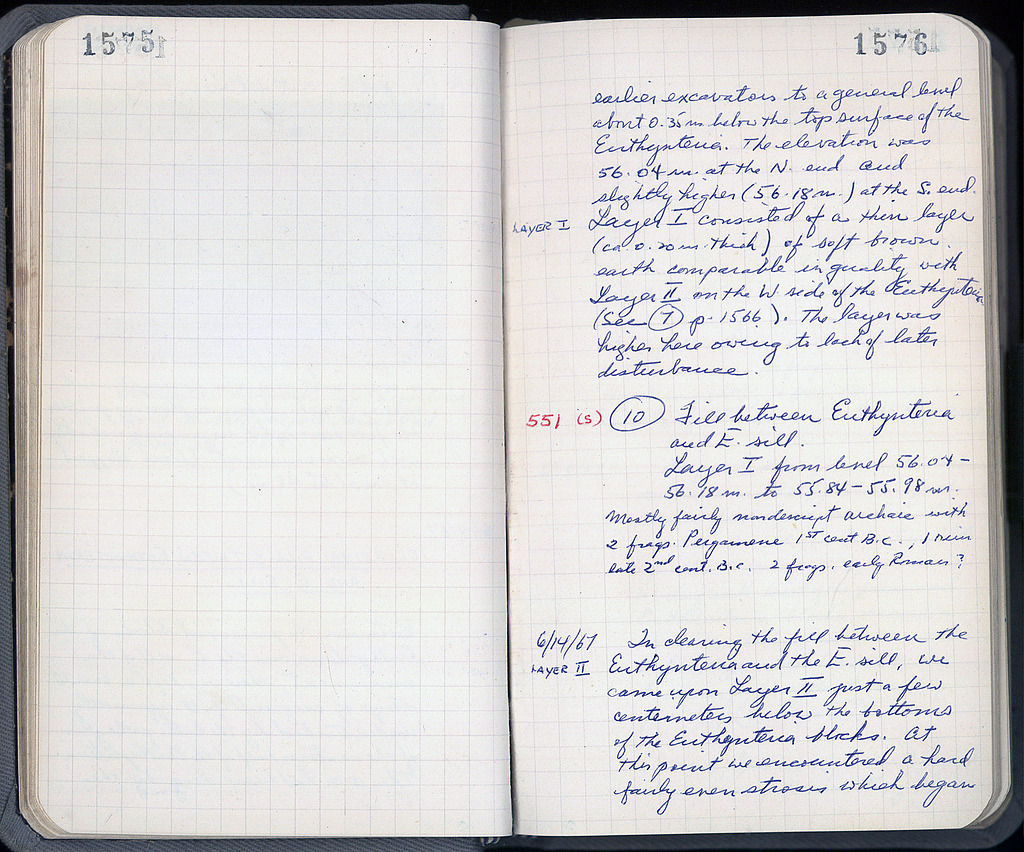 1575
1576
earlier excavators to a general level
about 0.35 m. below the top surface of the
Euthynteria. The elevation was
56.04 m. at the N. end and
slightly higher (56.18 m.) at the S. end.
LAYER I Layer I consisted of a thin layer
(ca. 0.20 m. thick) of soft brown
earth comparable in quality with
Layer II on the W side of the Euthynteria
(See 7 p. 1566). The layer was
higher here owing to lack of later
disturbance.
551 (S) 10 Fill between Euthynteria
and E. sill.
Layer I from level 56.04 –
56.18 m. to 55.84 – 55.98 m.
Mostly fairly nondescript archaic with
2 frags. Pergamene 1st cent B.C., 1 rim
late 2nd cent. B.C. 2 frags. early Roman?
6/14/67 In clearing the fill between the
LAYER II Euthynteria and the E. sill, we
came upon Layer II just a few
centemeters below the bottoms
of the Euthynteria blocks. At
this point we encountered a hard
fairly even strosis which began